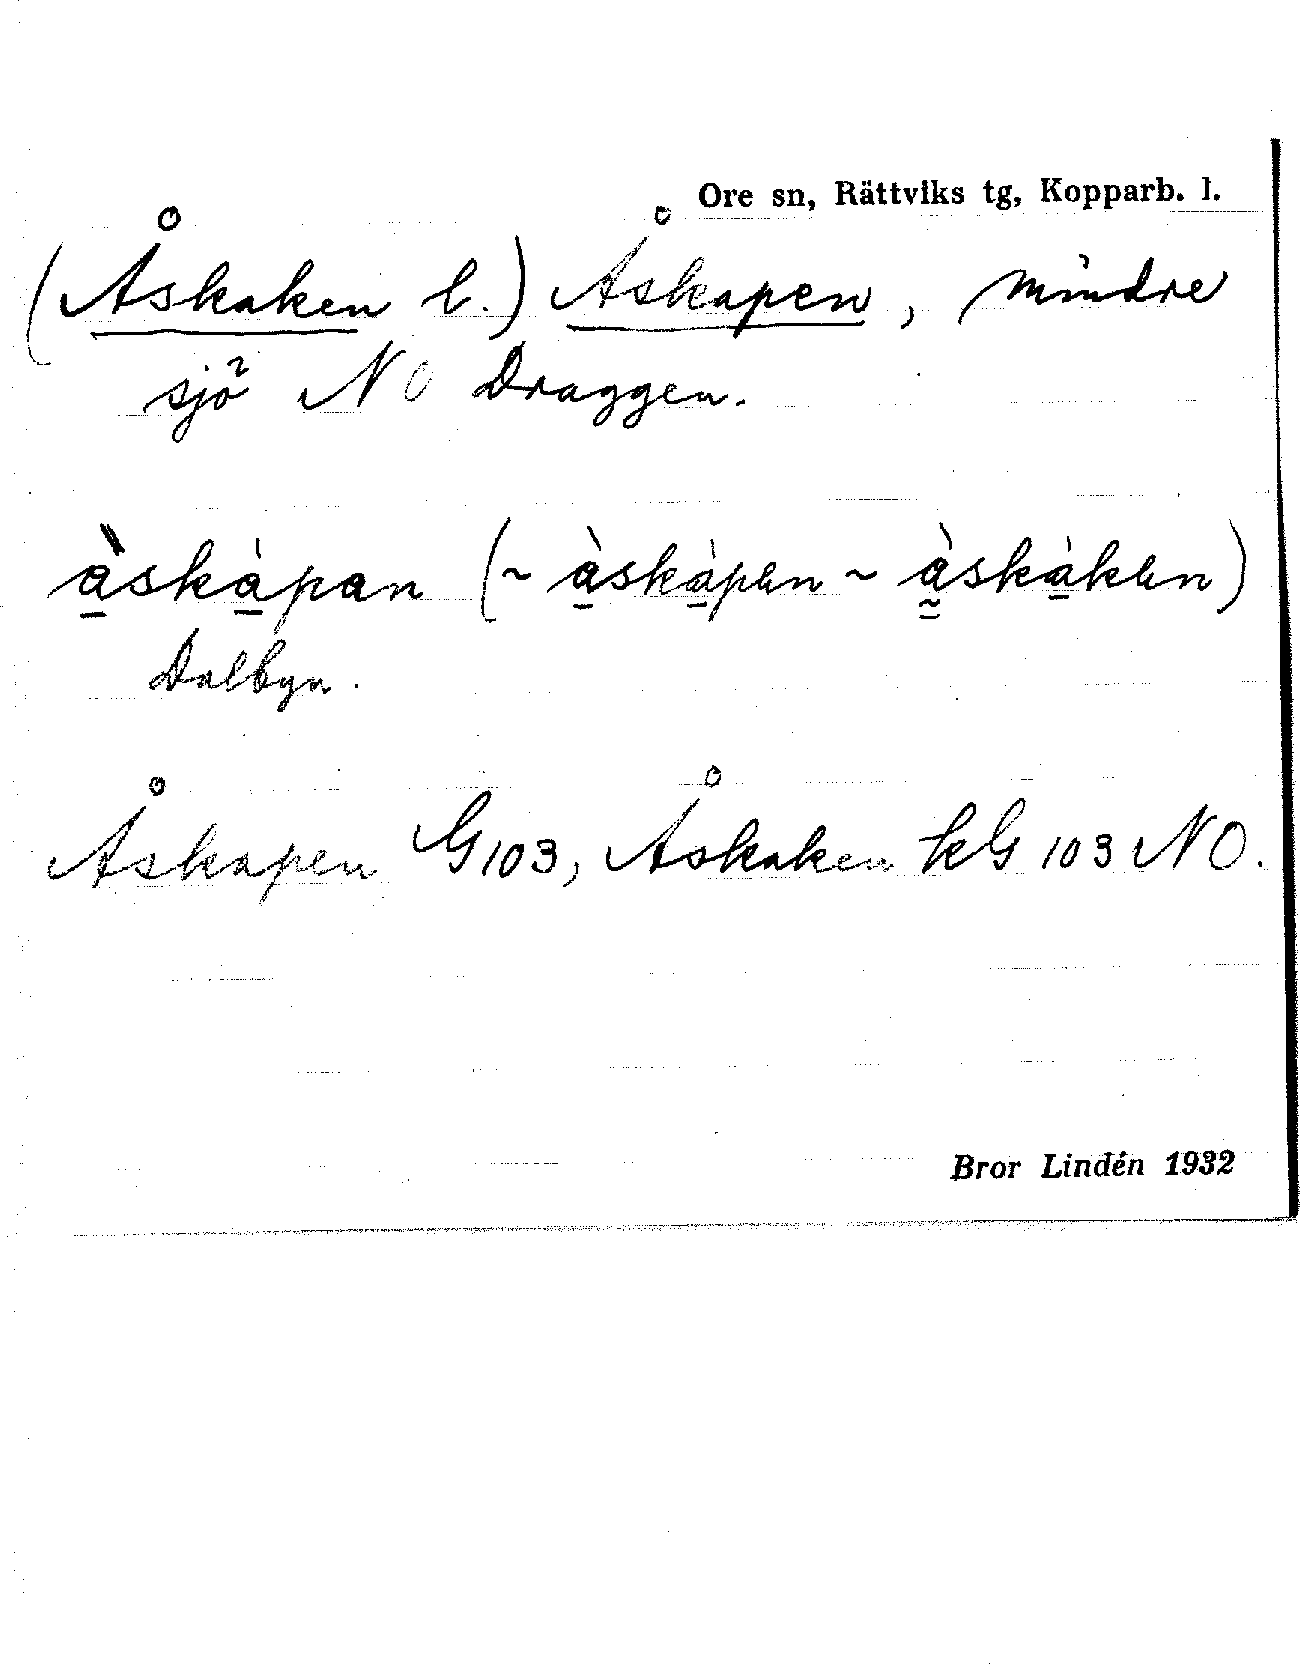 Ore sn, Rättviks tg, Kopparb. l.
(Åskaken l.) Åskapen, mindre
sjö NO Draggen.
à̱skà̱pan (~ à̱skà̱pɐn ~ à̱̰skà̱kɐn)
Dalbyn.
Åskapen G103, Åskaken kG 103 NO.
Bror Lindén 1932